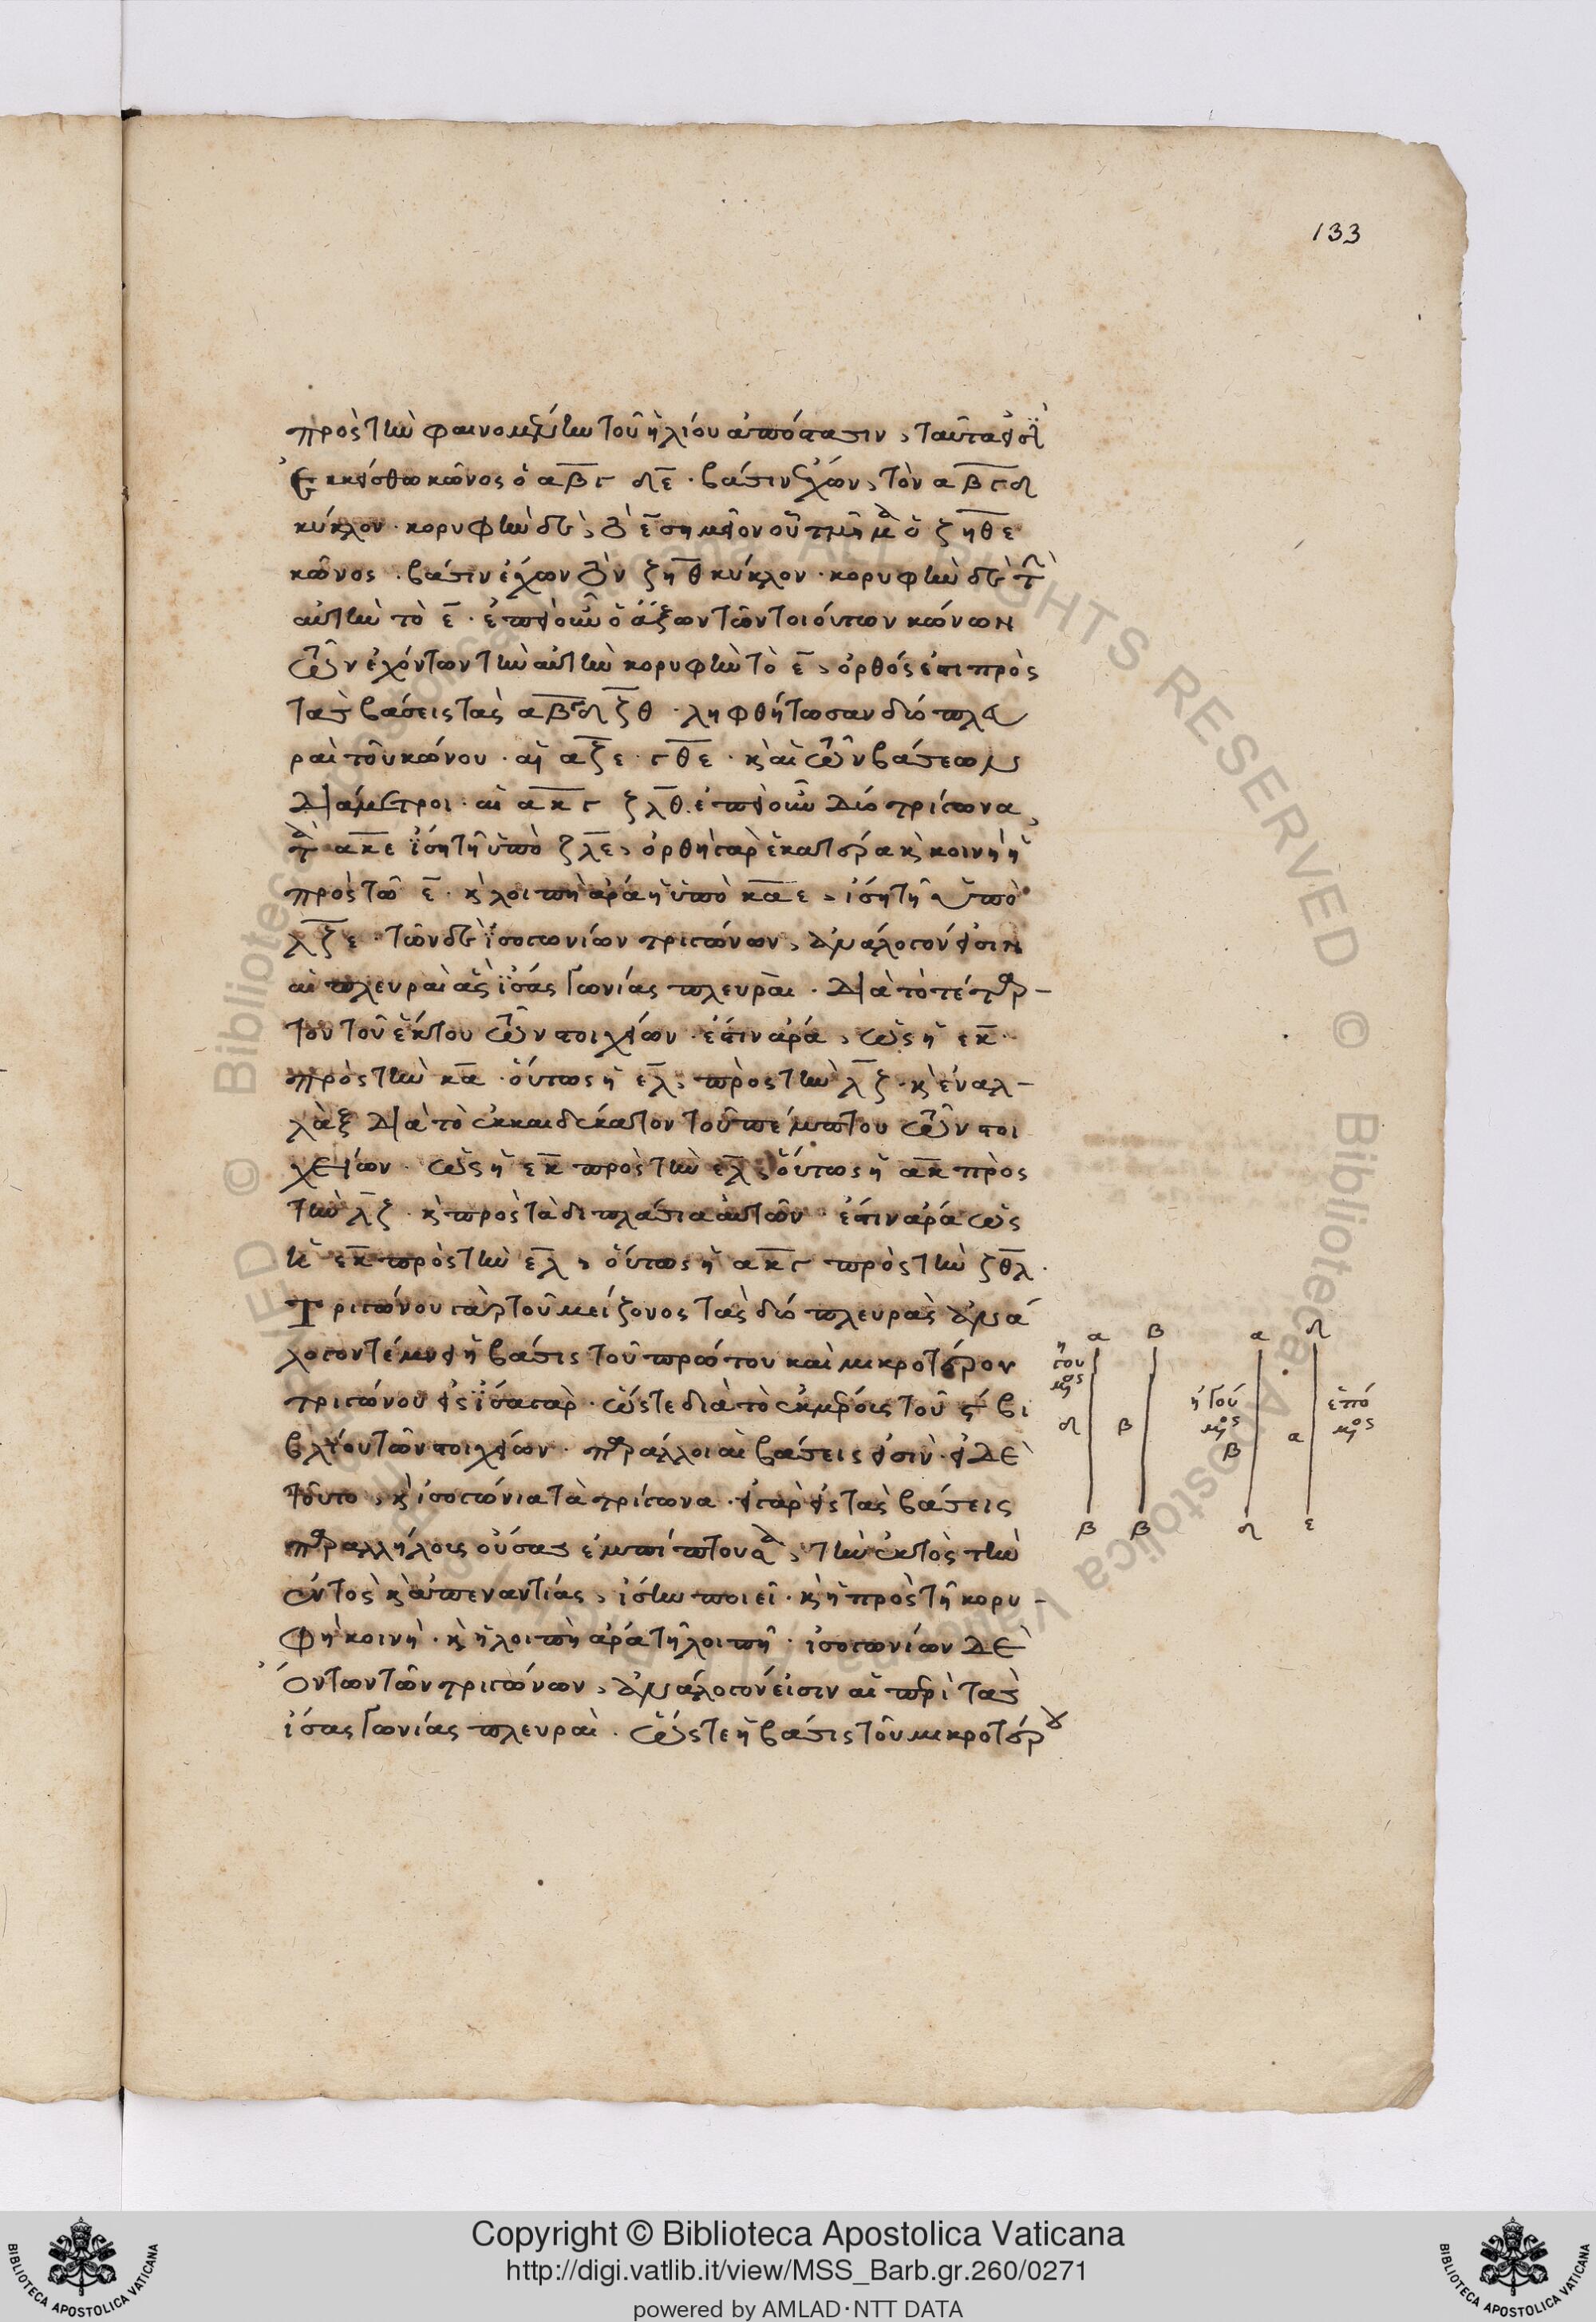 133
πρὸς τὴν φαινομένην τοῦ ἡλίου ἀπόστασιν, ταῦτα
ἐκκείσθω κῶνος ὁ αβγ δε · βάσιν ἔχων, τὸν αβγδ
κύκλον · κορυφὴν δὲ, τὸ ε σημεῖον οὗ τμῆμα ὁ ζηθε
κῶνος · βάσιν ἔχων τὸν ζηθ κύκλον · κορυφὴν δὲ τὴν
αὐτὴν τὸ ε · ἐπεὶ οὖν ὁ ἄξων τῶν τοιούτων κώνων
τῶν ἐχόντων τὴν αὐτὴν κορυφὴν τὸ ε, ὀρθός ἐστι πρὸς
τὰς βάσεις τὰς αβγδ ζθ · ληφθήτωσαν δύο πλευ
ραὶ τοῦ κώνου · αἱ αζε · γθε · κ αἱ τῶν βάσεων
διάμετροι · αἱ ακγ ζλθ · ἐπεὶ οὖν δύο τρίγωνα,
ακε ἴση τῆ ὑπὸ ζλε, ὀρθὴ γὰρ ἑκατέρα κ κοινὴ ἡ
πρὸς τῶ ε · κ λοιπὴ ἄρα ἡ ὑπὸ καε, ἴση τῆ ὑπὸ
λζε · τῶν δὲ ἰσογωνίων τριγώνων, ἀνάλογόν εἰσιν
αἱ πλευραὶ ἴσας γωνίας πλευραι · διὰ τὸ τέταρ-
τον τοῦ ἕκτου τῶν στοιχείων · ἔστιν ἄρα, ὡς ἡ εκ ·
πρὸς τὴν κα · οὕτως ἡ ελ, πρὸς τὴν λζ · κ ἐναλ-
λὰξ διὰ τὸ ἑκκαιδέκατον τοῦ πέμπτου τῶν στοι
χείων · ὡς ἡ εκ πρὸς τὴν ελ, οὕτως ἡ ακ πρὸς
τὴν λζ · κ πρὸς τὰ διπλάσια αὐτῶν · ἔστιν ἄρα ὡς
ἡ εκ πρὸς τὴν ελ, οὕτως ἡ ακγ πρὸς τὴν ζθλ ·
Τριγώνου γὰρ τοῦ μείζονος τὰς δύο πλευρὰς ἀνά
λογον τέμνει ἡ βάσις τοῦ πρώτου καὶ μικροτέρου
τριγώνου · ὥστε διὰ τὸ τοῦ ϛ βι
βλίου τῶν στοιχείων · παράλλοι αἱ βάσεις εἰσὶν · εἰ δὲ
τοῦτο, κ ἰσογώνια τὰ τρίγωνα · εἰ γὰρ εἰς τὰς βάσεις
παραλλήλοις οὔσας ἐμπίπτουσα, τὴν ἐκτὸς τὴν
ἐντὸς κ ἀπεναντίας, ἴσην ποιεῖ · κ ἡ πρὸς τῆ κορυ-
φῆ κοινὴ · κ ἡ λοιπὴ ἄρα τῆ λοιπῆ · ἰσογωνίων δὲ
ὄντων τῶν τριγώνων, ἀνάλογόν εἰσιν αἱ περὶ τὰς
ἴσας γωνίας πλευραὶ · ὥστε ἡ βάσις τοῦ μικροτέρου
α β α δ
δ β β α
β β δ ε
Copyright © Biblioteca Apostolica Vaticana
http://digi.vatlib.it/view/MSS_Barb.gr.260/0271
powered by AMLAD·NTT DATA
BIBLIOTECA APOSTOLICA VATICANA
BIBLIOTECA APOSTOLICA VATICANA